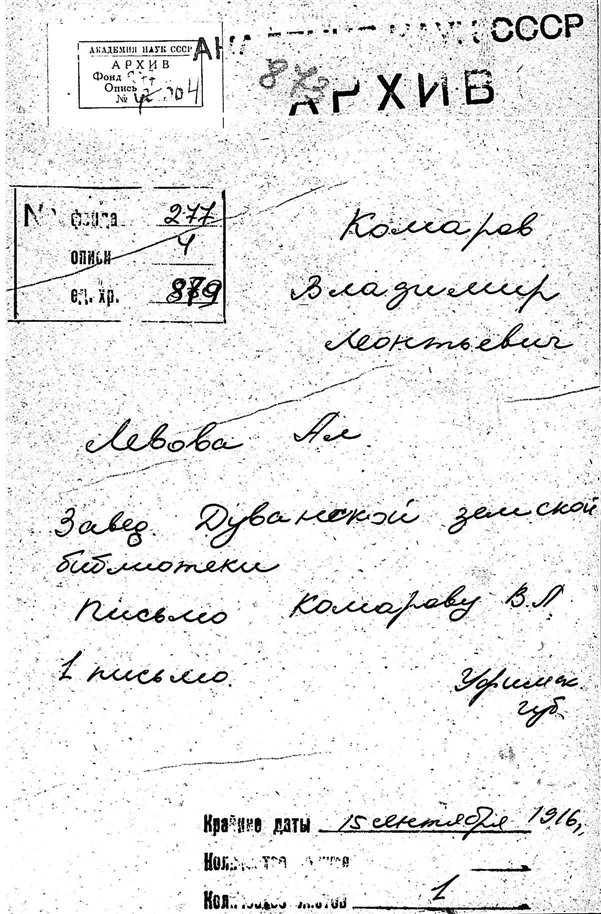 АКАДЕМИЯ НАУК СССР
АРХИВ
Фонд 277
Опись 4
№
СССР
АРХИВ
№ фонда 277
описи 4
ед. хр. 879
Комаров
Владимир
Леонтьевич
Левова Ал
Завед. Дуванской земской
библиотеки
Письмо Комарову В.Л
1 письмо.
Уфимск.
губ.
Крайние даты 15 сентября 1916,
Количество листов 1